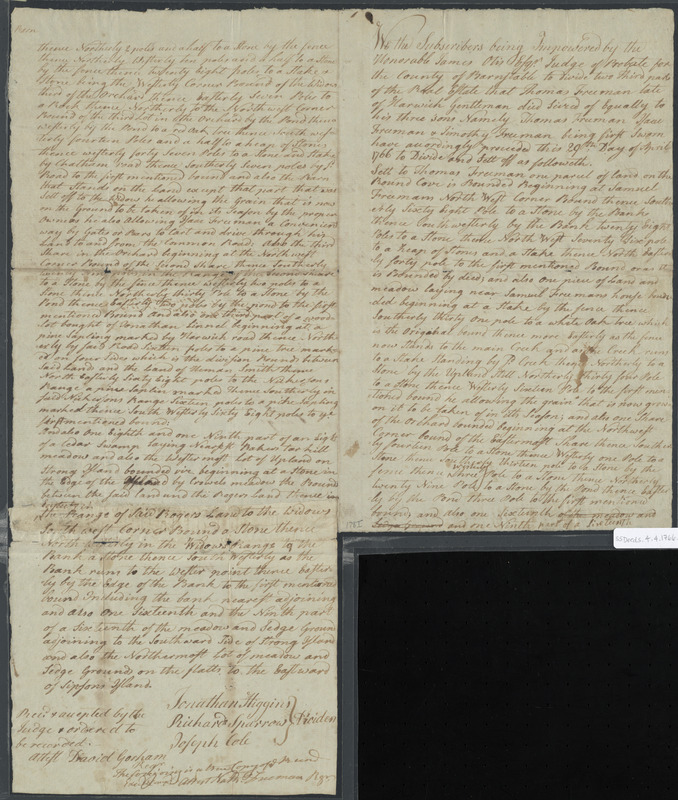 We the Subscribers being Impowered by the
Honorable James Otis Esqr Judge of Probate for
the County of Barnstable to Divide two third parts
of the Real Estate that Thomas Freeman late
of Harwich Gentleman died Siesed of Equally to
his three sons Namely Thomas Freeman Isaac
Freeman & Timothy Freeman being first Sworn
have accordingly proceeded this 29th Day of April
1766 to Divide and Sett off as followeth.
Sett to Thomas Freeman one parcel of land on the
Round Cove is Bounded Beginning at Samuel
Freemans North West Corner Bound thence South
erly Sixty Eight Pole to a Stone by the Bank
thence Southwesterly by the Bank twenty Eight
Poles to a Stone thence North West Seventy Six pole
to a Heap of Stones and a Stake thence North Easter
ly forty pole to the first mentioned Bound or as it
is Bounded by deed and also one piece of land and
meadow laying near Samuel Freemans house boun
ded beginning at a Stake by the fence thence
Southerly thirty one pole to a white Oak tree which
is the Original bound thence more Easterly as the fence
now Stands to the main Creek and as the Creek runs
to a Stake Standing by sd Creek thence Northerly to a
Stone by the Upland Still Northerly thirty four Pole
to a Stone thence Westerly Sixteen Pole to the first men
tioned bound he allowing the grain that is now grown
on it to be taken of in its Season; and also one Share
of the Orchard bounded beginning at the Northwest
Corner bound of the Eastermost Share thence Souther
ly fourteen Pole to a Stone thence Westerly one Pole to a
Stone thence Westerly thirteen pole to a Stone by the
fence thence three Pole to a Stone thence Northerly
twenty Nine Pole to a Stone by the Pond thence Easter
ly by the Pond three Pole to the first mentioned
bound, and also one Sixteenth
and one Ninth part of a Sixteenth
SSDeacs.4.4.1766
thence Northerly 2 poles and a half to a Stone by the fence
thence Northerly Westerly ten poles and a half to a Stone
by the fence thence Seventy Eight poles to a Stake &
Stone being the Westerly Corner Bound of the Widows
third of the Orchard thence Easterly Seven Pole to
a Rock thence Northerly to the Northwest Corner
Bound of the third Lot in the Orchard by the Pond thence
westerly by the Pond to a red Oak tree thence South wes
terly fourteen Poles and a half to a heap of Stones
thence westerly forty Seven Poles to a Stone and Stake
by Chatham Road thence Southerly Seven poles by sd
Road to the first mentioned bound and also the Barn
that Stands on the land except that part that was
Sett off to the Widow he allowing the Grain that is now
on the Ground to be taken of in its Season by the proper
Owners he also Allowing free Liberty a Convenient
way by Gates or Bars to Cart and drive through his
Land to and from the Common Road. Also the third
Share in the Orchard beginning at the North west
Corner Bound of the Second Share thence Southerly
to a Stone by the fence thence westerly two poles to a
Stone thence Northerly thirty Pole to a Stone by the
Pond thence Easterly two poles by the pond to the first
mentioned Bound and also one third part of a wood
lot bought of Jonathan Linnel beginning at a
pine Sapling marked by Harwich road thence North
erly by said Road Sixteen poles to a pine tree mark
ed on four Sides which is the division Bound between
said land and the Land of Heman Smith thence
North Easterly Sixty Eight poles to the Nickersons
Range a pine Saplin marked thence Southerly in
said Nickersons Range Sixteen poles to a pine Saplin
marked thence South Westerly Sixty Eight poles to ye
first mentioned bound:
And also one Eighth and one Ninth part of an Eight
of a Cedar Swamp laying Near
meadow and also the Westermost Lot of Upland on
Strong Island bounded viz beginning at a Stone in
the Edge of the Upland by Cowels meadow the Bound
between the said Land and the Rogers Land thence in
the Range of said Rogers Land to the Widows
Southwest Corner Bound a Stone thence
North in the Widows Range to the
Bank a Stone thence South Westerly as the
Bank runs to the Wester point thence Easter
ly by the Edge of the Bank to the first mentioned
bound Including the bank nearest adjoining
and also one Sixteenth and the Ninth part
of a Sixteenth of the meadow and Sedge Ground
adjoining to the Southward Side of Strong Island
and also the Northermost Lot of meadow and
Sedge Ground on the flatts to the Eastward
of Sipsons Island.
Jonathan Higgins
Richard Sparrow
Joseph Cole
Dividers
Recd & accepted by the
Judge & ordered to
be recorded.
Attest David Gorham
Regr
The foregoing is a true Copy of Record
Attest Nathl Freeman Regr